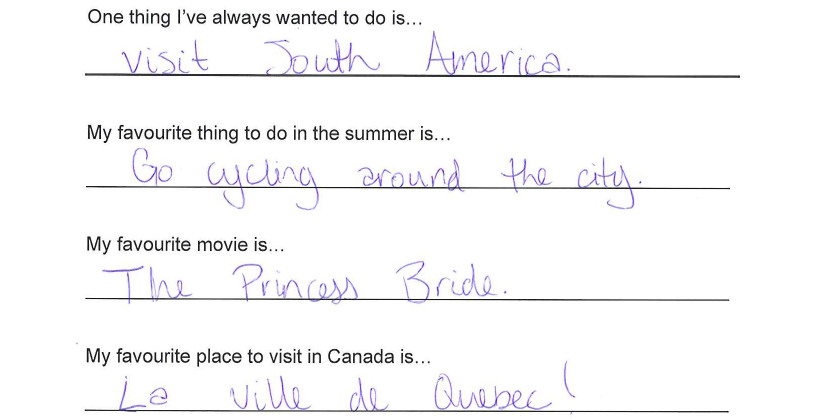 One thing I've always wanted to do is...
visit South America.
My favourite thing to do in the summer is...
Go cycling around the city.
My favourite movie is...
The Princess Bride.
My favourite place to visit in Canada is...
La ville de Quebec!